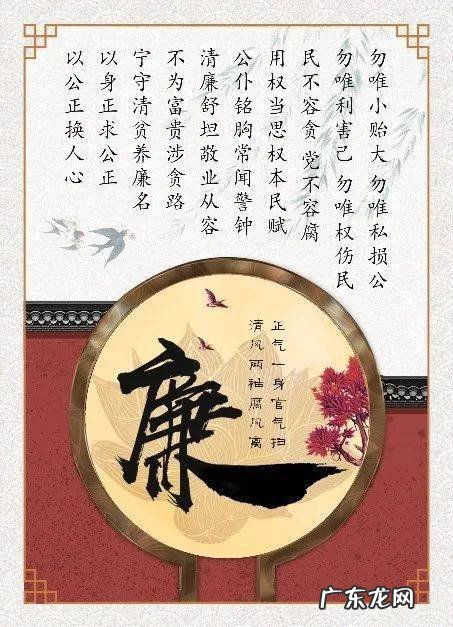 勿唯小贻大 勿唯私损公
勿唯利害己 勿唯权伤民
民不容贪 党不容腐
用权当思权本民赋
公仆铭胸常闻警钟
清廉舒坦敬业从容
不为富贵涉贪路
宁守清贫养廉名
以身正求公正
以公正换人心
正气一身官气扫
清风两袖腐风离
廉
广东龙网